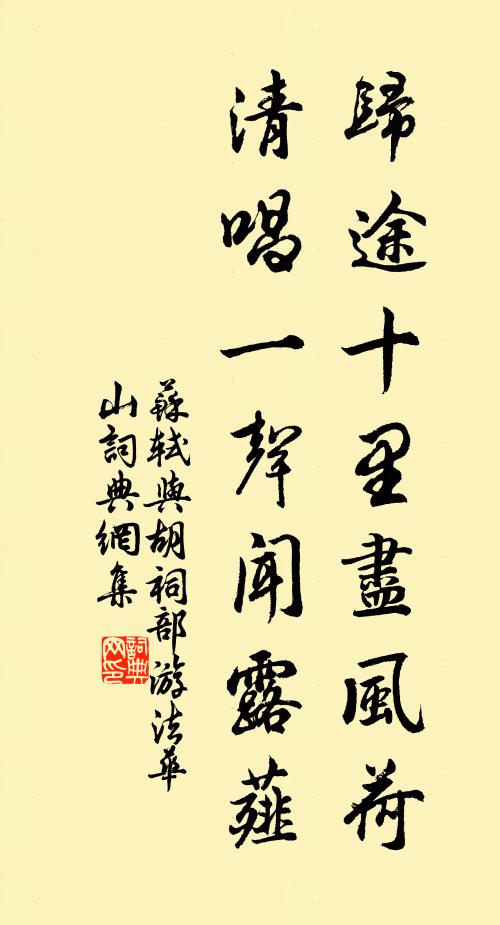 歸途十里盡風荷
清唱一聲聞露薤
蘇軾與胡祠部游法華
山詞典網集
詞典
网印